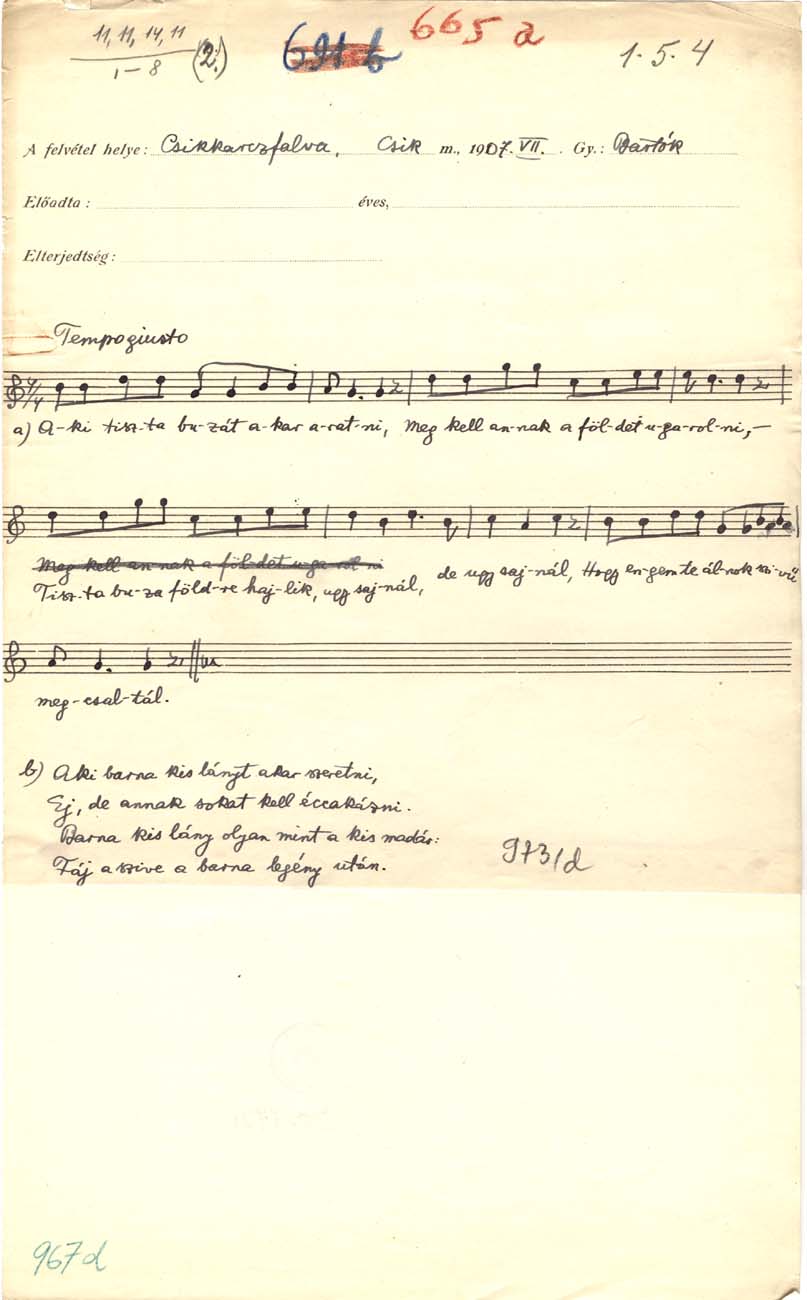 11, 11, 14, 11
1–8 (2.)
691 b
665 a
1. 5. 4
A felvétel helye: Csikkarczfalva, Csik m., 1907. VII. Gy.: Bartók
Előadta: éves,
Elterjedtség:
Tempo giusto
4/4
a) A-ki tisz-ta bu-zát a-kar a-rat-ni, Meg kell an-nak a föl-det u-ga-rol-ni,-
Meg kell an-nak a föl-det u-ga-rol-ni
Tisz-ta bu-za föld-re haj-lik, ugy saj-nál, de ugy saj-nál, Hogy en-gem te ál-nok szi-vü
meg-csal-tál.
b) Aki barna kis lányt akar szeretni,
Ej, de annak sokat kell éccakázni.
Barna kis lány olyan mint a kis madár:
Fáj a szive a barna legény után.
973/d
967 d